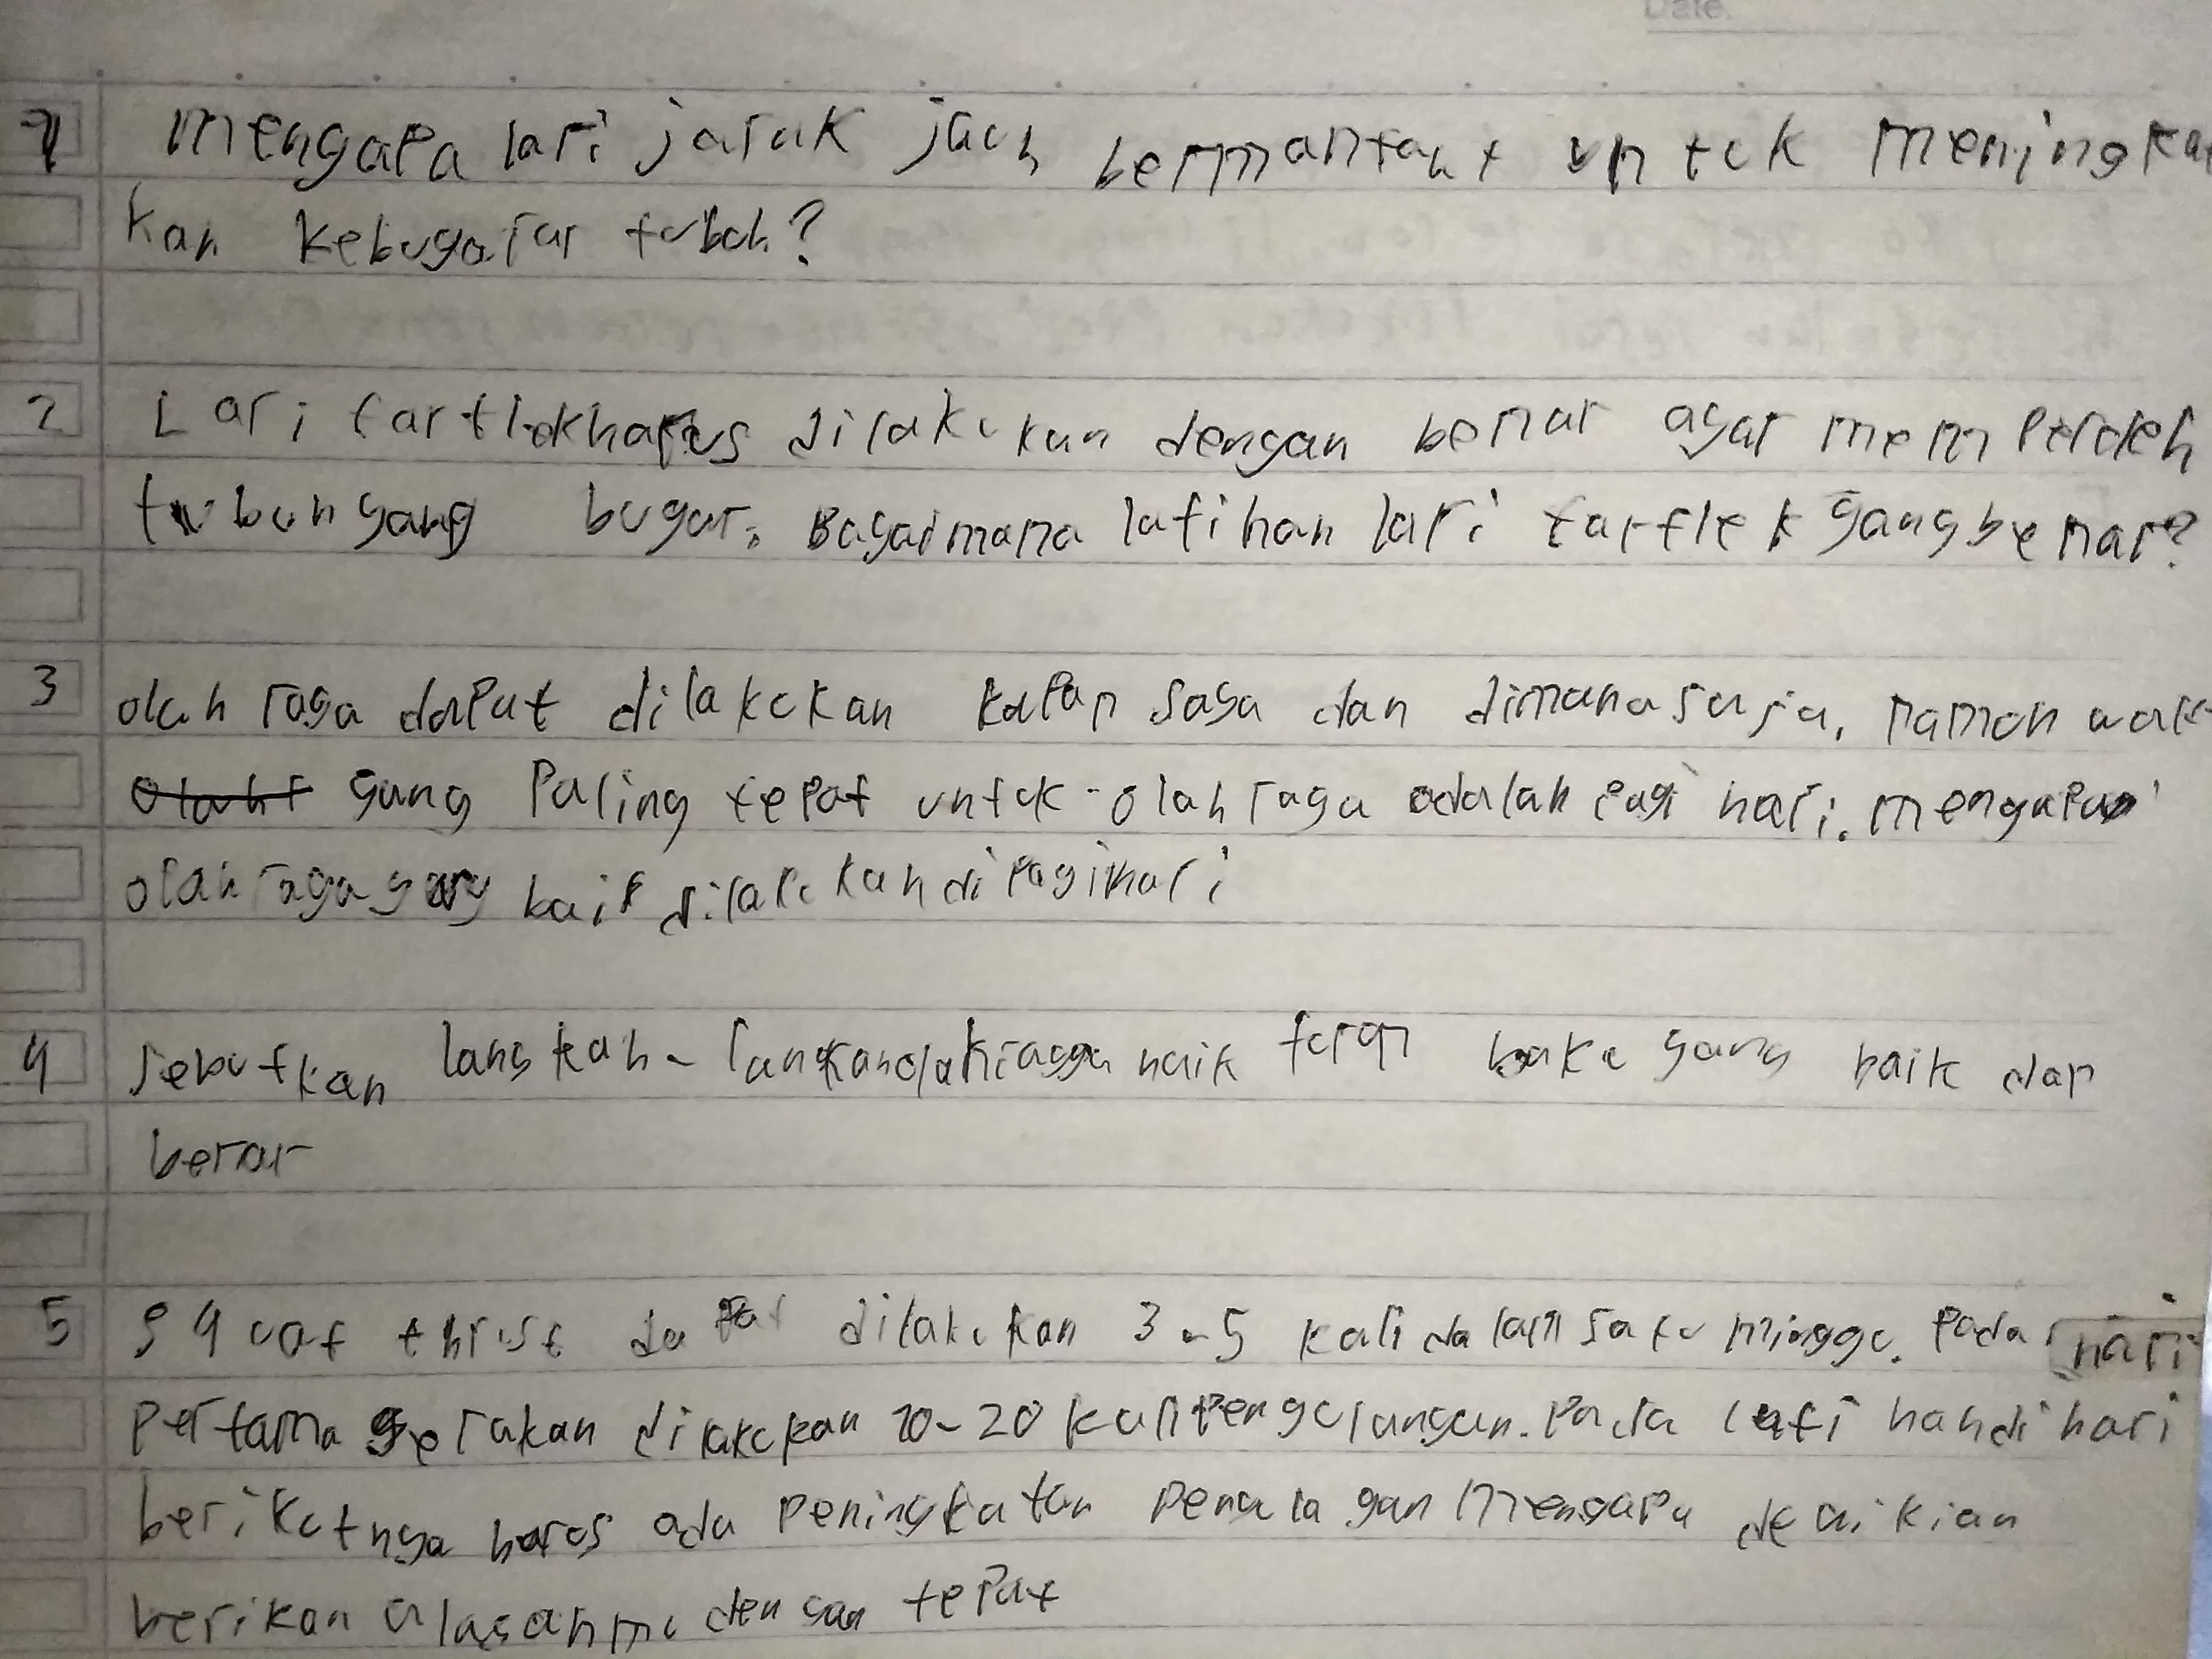 Date.
1 mengapa lari jarak jauh bermanfaat untuk meningkat
kan kebugaran tubuh?
2 Lari fartlek harus dilakukan dengan benar agar memperoleh
tubuh yang bugar. Bagaimana latihan lari fartlek yang benar?
3 olah raga dapat dilakukan kapan saja dan dimana saja, namun wakt
yang paling tepat untuk olah raga adalah pagi hari. mengapa
olah raga yang baik dilakukan di pagi hari
4 sebutkan langkah-langkah olahraga naik turun baku yang baik dan
benar
5 squat thrust dapat dilakukan 3-5 kali dalam satu minggu. Pada hari
pertama gerakan dilakukan 10-20 kali pengulangan. Pada latihan di hari
berikutnya harus ada peningkatan mengapa demikian
berikan alasanmu dengan tepat